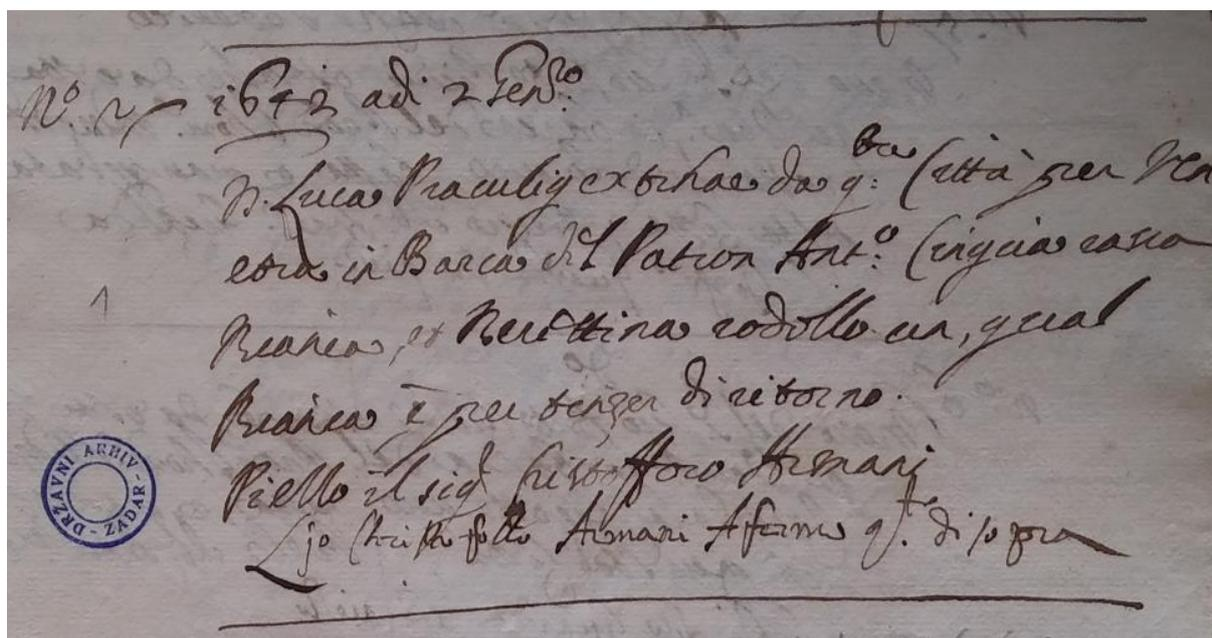 N.º 2 1642 adi 2 Gen.ro
S. Luca Pracuglig extrhae da q:sta Città per Ven
etia in Barca del Patron Ant.º Cingria rassa
Bianca, et Berettina rodollo un, qual
Bianca è per tenzer di ritorno.
Piello il sig.r Cristofforo Armani
Jo Christofollo Armani Afermo q.to di sopra
1
DRŽAVNI ARHIV - ZADAR -